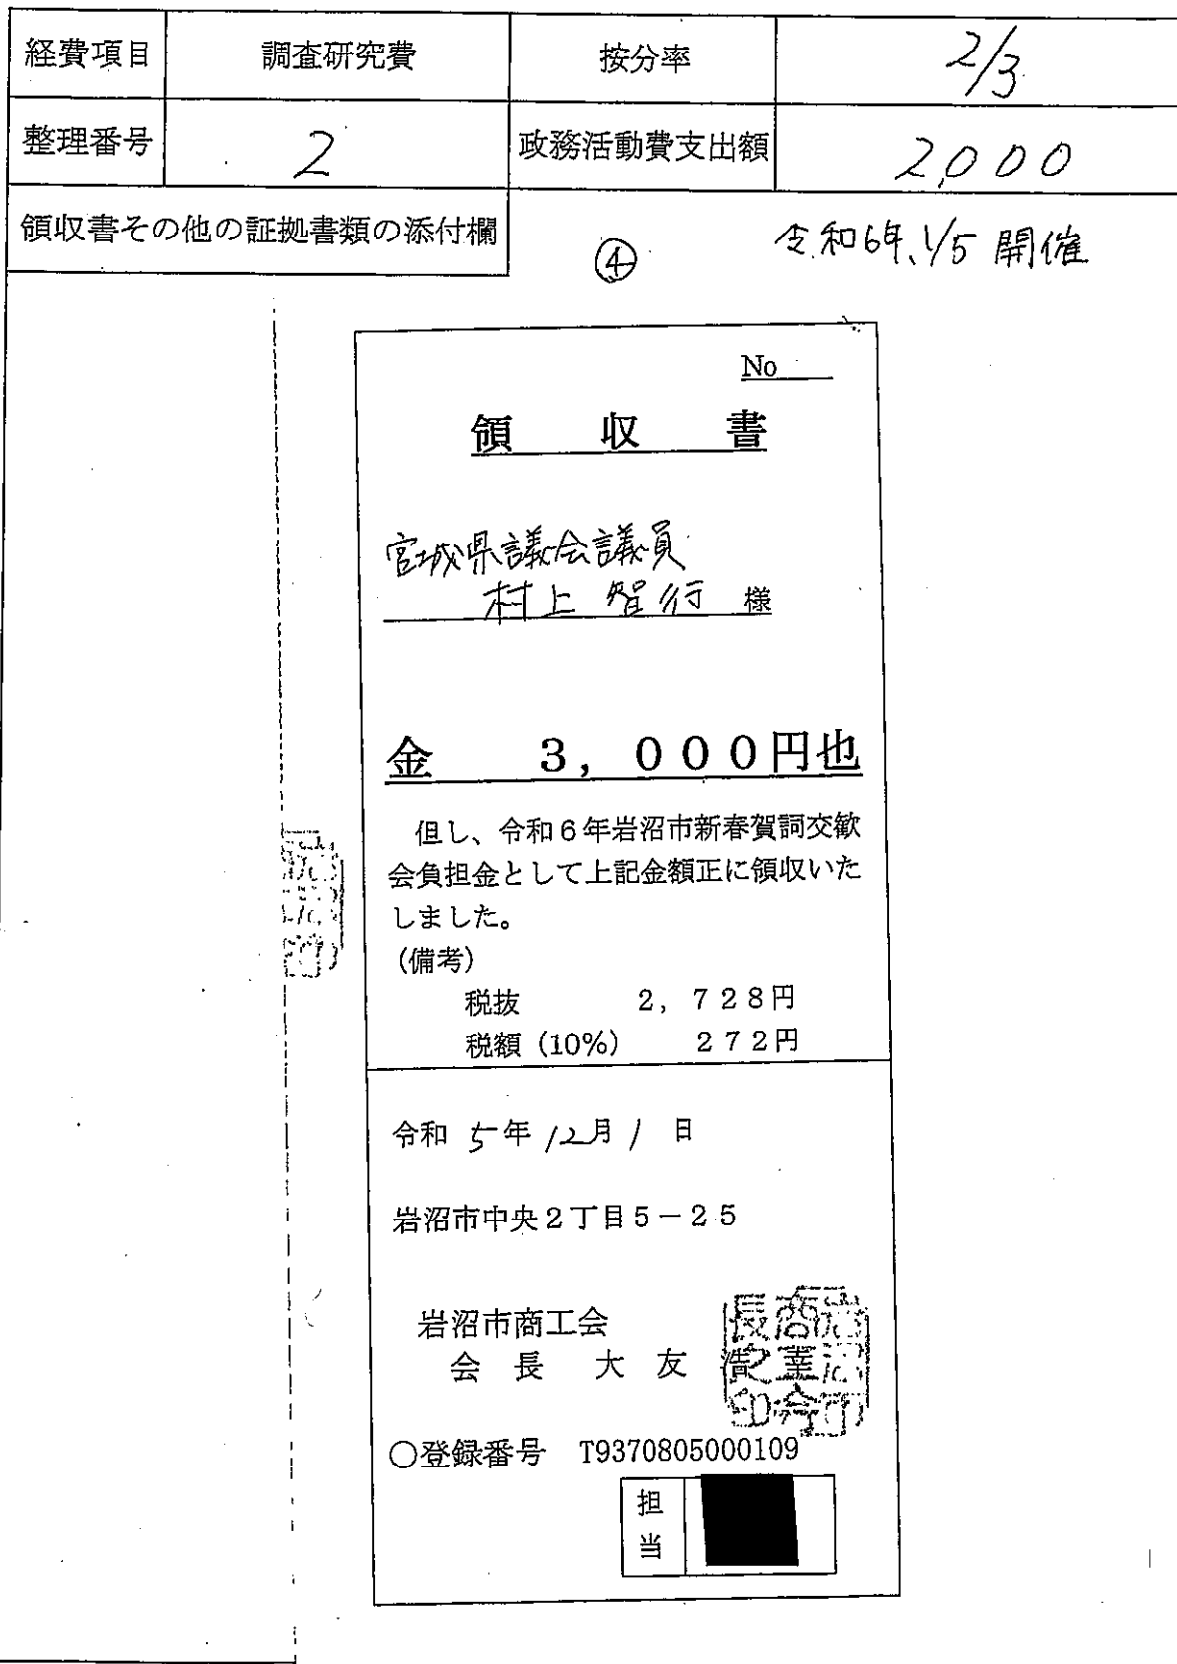 経費項目 調査研究費 按分率 2/3
整理番号 2 政務活動費支出額 2,000
領収書その他の証拠書類の添付欄
④ 令和6年、1/5 開催
No
領収書
宮城県議会議員
村上 智行 様
金 3,000円也
但し、令和6年岩沼市新春賀詞交歓
会負担金として上記金額正に領収いた
しました。
(備考)
税抜 2,728円
税額(10%) 272円
令和 5年 12月 1 日
岩沼市中央2丁目5-25
岩沼市商工会
会長 大友 浩
〇登録番号 T9370805000109
担当